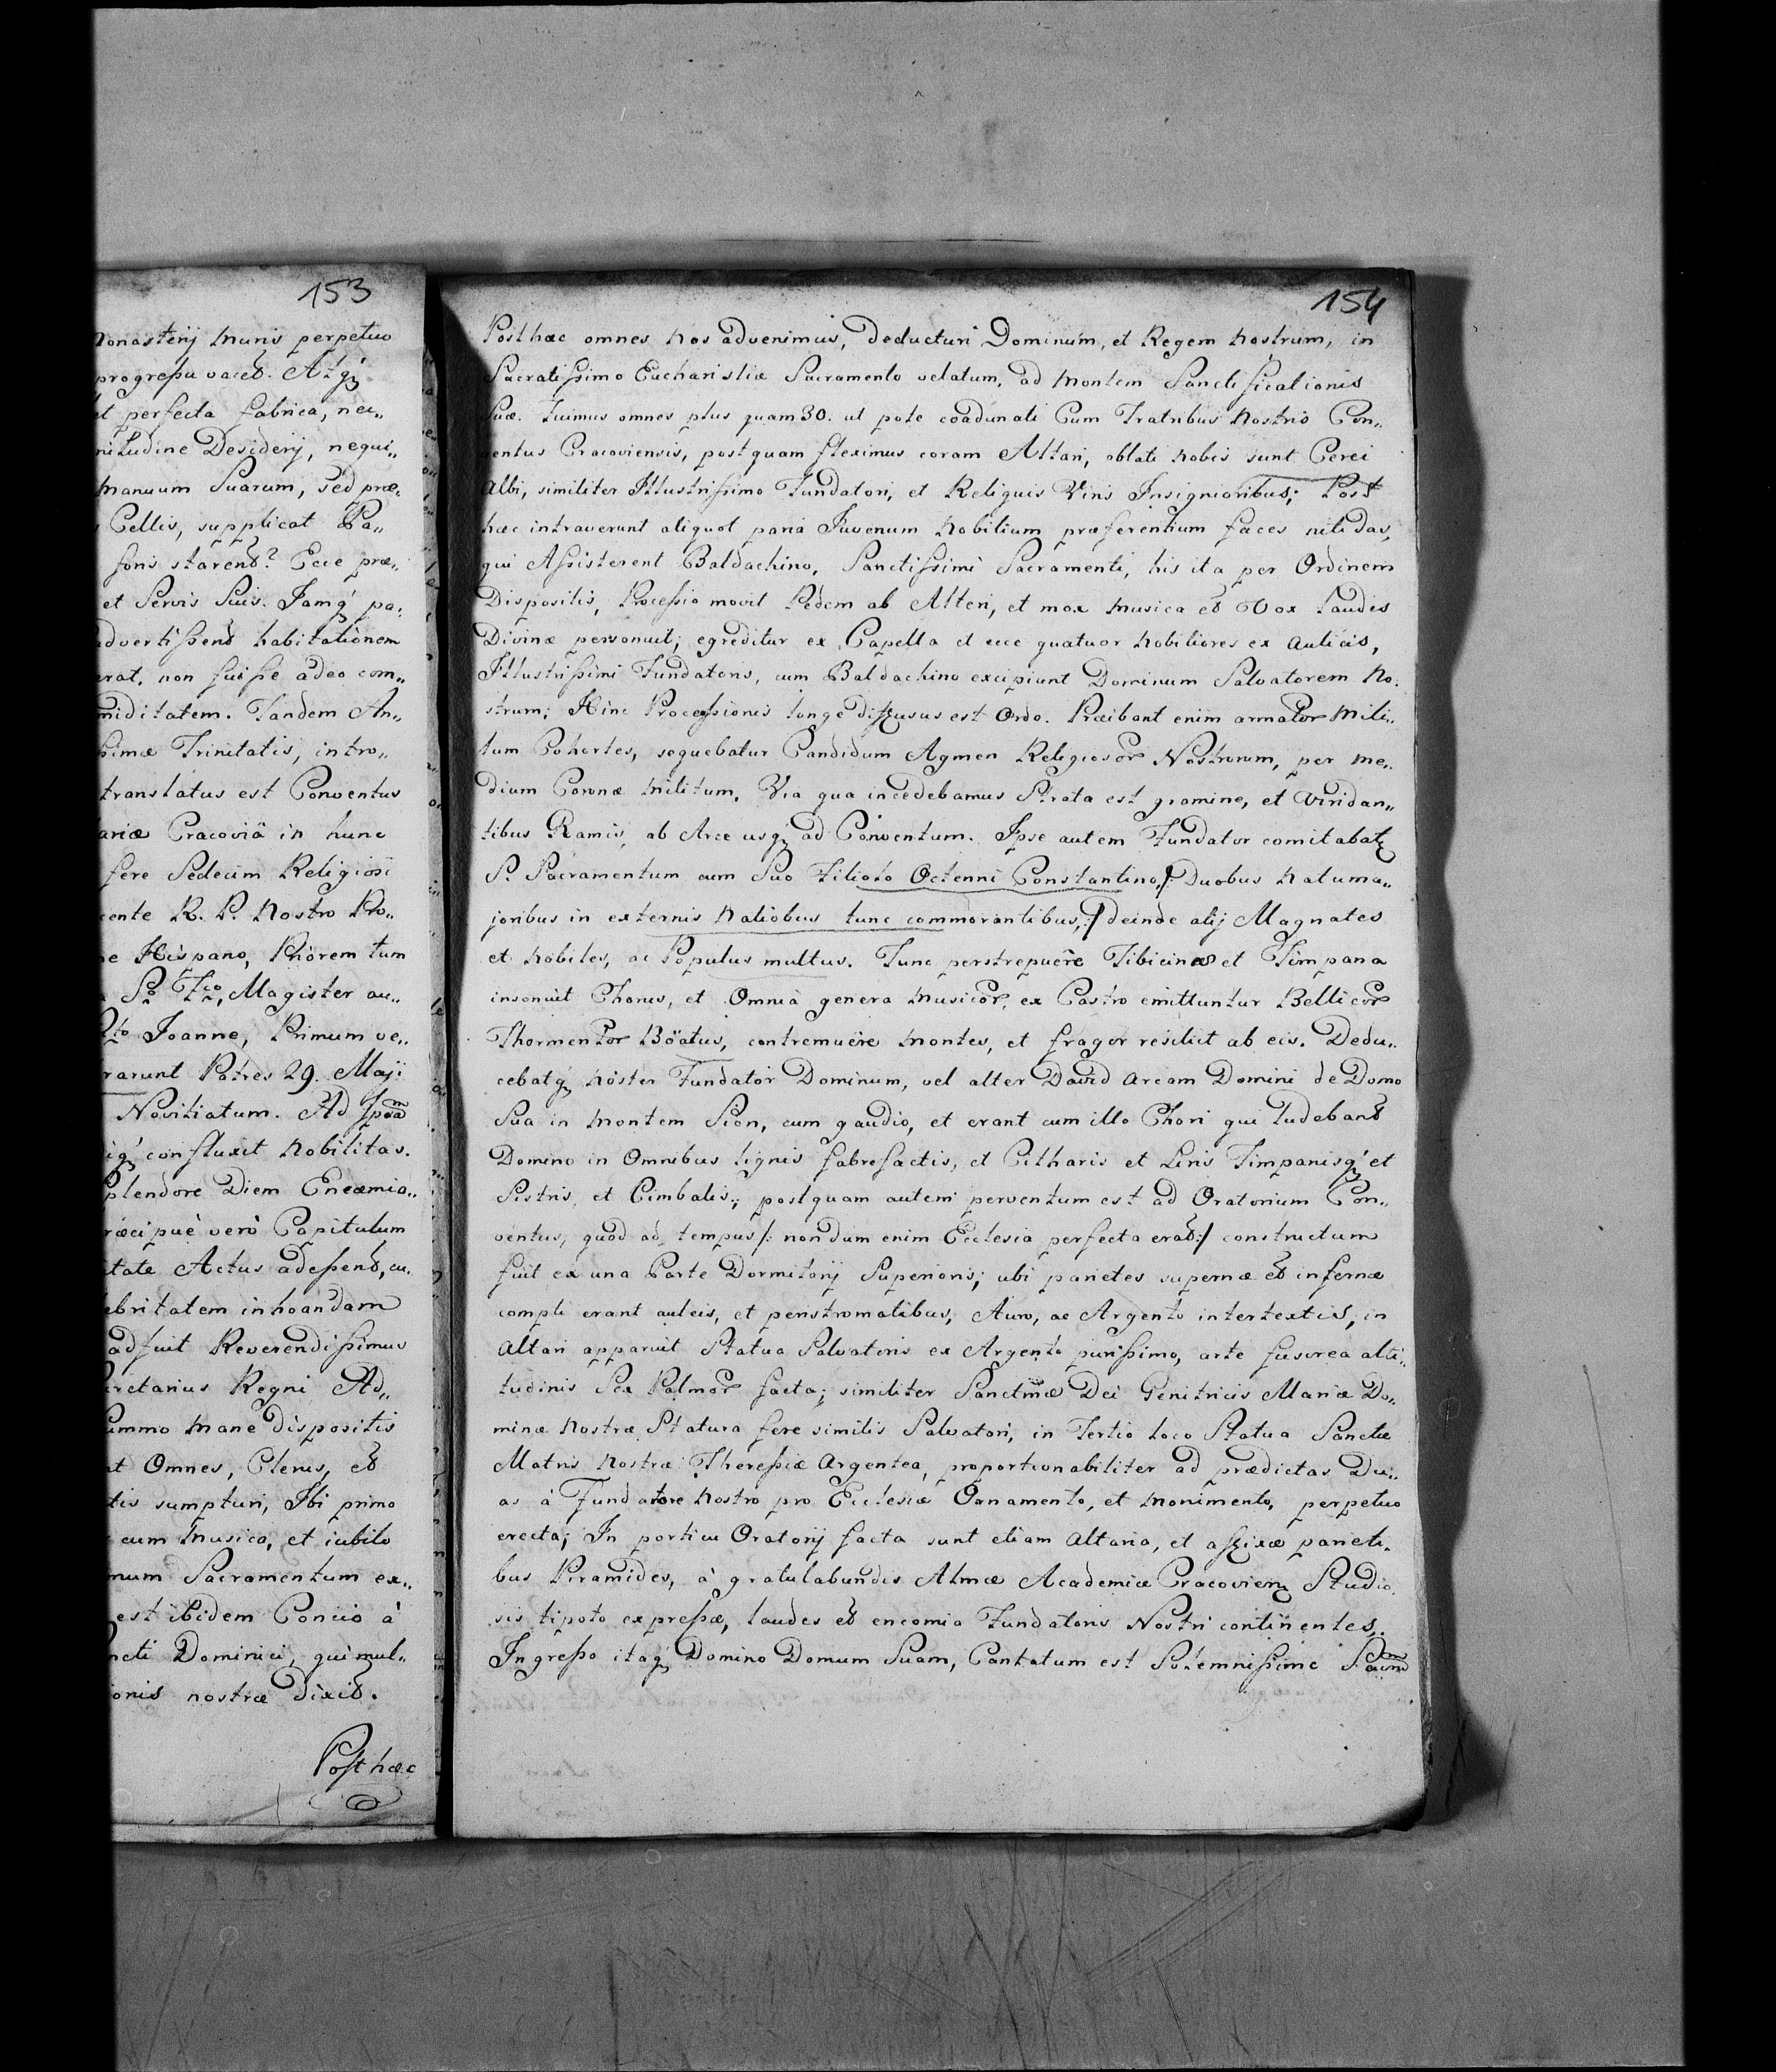 153
monasterij muris perpetuo
progreßu vacet. Atq́ꝫ
et perfecta fabrica, nec„
nitudine Desiderij, nequi„
manuum Suarum, sed præ„
Cellis, supplicat Pa„
foris starent? Ecce præ„
et Servis Suis. Jamq́ꝫ pa„
advertißent habitationem
erat, non fuiße adeo com„
miditatem. Tandem An„
ßimæ Trinitatis, intro„
translatus est Conventus
ariæ Cracoviâ in hunc
fere Sedecim Religiosi
cente R. P. Nostro Pro„
e Hispano, Priorem tum
Magister au„
Joanne, Primum ve„
rarunt Patres 29. Maji
Novitiatum. Ad
iq́ꝫ confluxit Nobilitas.
plendore Diem Encæmia„
ræcipuè verò Capitulum
itate Actus adeßent, cu„
ebritatem inhoandam
adfuit Reverendißimus
cretarius Regni Ad„
ummo mane dispositis
nt Omnes, Clerus, et
tis sumpturi, Ibi primo
cum Musica, et iubilo
mum Sacramentum ex„
est ibidem Concio à
ncti Dominici, qui mul„
ionis nostræ dixit.
Post hæc
154
Post hæc omnes nos advenimus, deducturi Dominum, et Regem nostrum, in
Sacratißimo Eucharistiæ Sacramento velatum, ad montem Sanctificationis
Suæ. Fuimus omnes plus quam 30. ut pote coadunati Cum Fratribus Nostris Con„
ventus Cracoviensis, postquam fleximus coram Altari, oblati nobis sunt Cerei
Albi, similiter Illustrißimo Fundatori, et Reliquis Viris Insignioribus; Post
hæc intraverunt aliquot paria Juvenum Nobilium præferentium faces nitidas,
qui Aßisterent Baldachino, Sanctißimi Sacramenti, his ita per Ordinem
Dispositis, Proceßio movit Pedem ab Alteri, et mox musica et Vox laudis
Divinæ personuit; egreditur ex Capella et ecce quatuor Nobiliores ex Aulicis,
Illustrißimi Fundatoris, cum Baldachino excipiunt Dominum Salvatorem No„
strum; Hinc Proceßionis longe diffusus est Ordo. Præibant enim armatoꝝ Mili„
tum Cohortes, sequebatur Candidum Agmen Religiosoꝝ Nostrorum, per me„
dium Coronæ Militum. Via qua incedebamus Strata est gramine, et Viridan„
tibus Ramis, ab Arce usq́ꝫ ad Conventum. Ipse autem Fundator comitabatꝫ
S. Sacramentum cum Suo Filiolo Octenni Constantino,/: Duobus natu ma„
joribus in externis natiõbus tunc commorantibus,:/ deinde alij Magnates
et nobiles, ac Populus multus. Tunc perstrepuêre Tibicinæ et Timpana
insonuit Chorus, et Omnia genera Musicoꝝ, ex Castro emittuntur Bellicoꝝ
Thormentoꝝ Böatus, contremuêre montes, et fragor resiliit ab eis. Dedu„
cebatq́ꝫ noster Fundator Dominum, vel alter David Arcam Domini de Domo
Sua in montem Sion, cum gaudio, et erant cum illo Chori qui ludebant
Domino in Omnibus lignis fabrefactis, et Citharis et Liris Timpanisq́ꝫ et
Sistris, et Cimbalis; postquam autem perventum est ad Oratorium Con„
ventus, quod ad tempus/: nondum enim Ecclesia perfecta erat:/ constructum
fuit ex una Parte Dormitorij Superioris; ubi parietes supernæ et infernæ
compti erant auleis, et peristromatibus, Auro, ac Argento intertextis, in
Altari apparuit Statua Salvatoris ex Argento purißimo, arte fusorea alti„
tudinis Sex Palmoꝝ facta; similiter Sanctmæ Dei Genitricis Mariæ Do„
minæ Nostræ Statura fere similis Salvatori, in Tertio loco Statua Sanctæ
Matris Nostræ Thereßiæ Argentea, proportionabiliter ad prædictas Du„
as à Fundatore Nostro pro Ecclesiæ Ornamento, et monimento, perpetuo
erecta; In porticu Oratorij facta sunt etiam Altaria, et affixæ parieti„
bus Piramides, à gratulabundis Almæ Academiæ Cracovienꝫ Studio„
sis tipoto expreßæ, laudes et encomia Fundatoris Nostri continentes.
Ingreßo itaq́ꝫ Domino Domum Suam, Cantatum est Solemnißime Sacrum